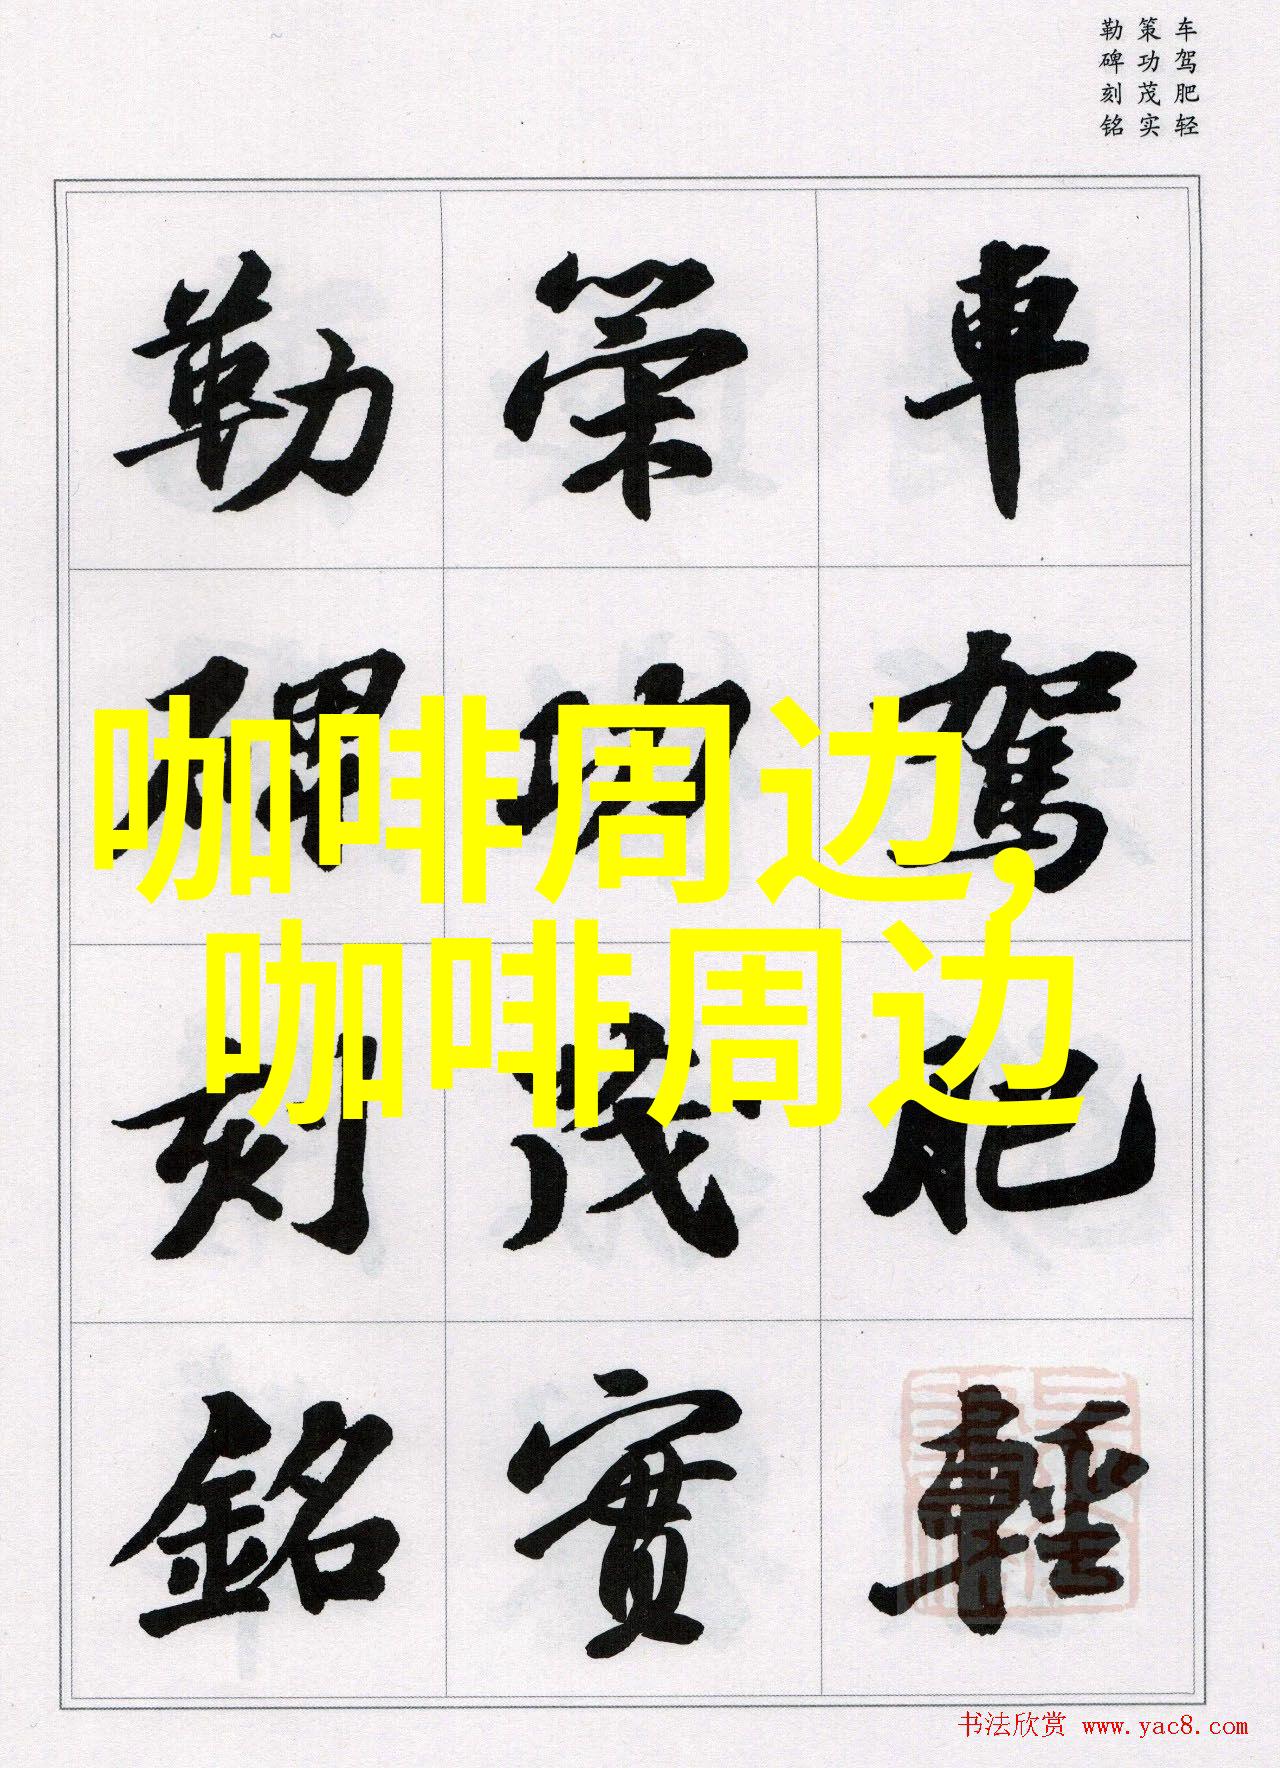 车驾肥轻
策功茂实
勒碑刻铭
車駕肥輕
策功茂實
勒碑刻銘
咖啡周边,
咖啡周边
书法欣赏 www.yac8.com